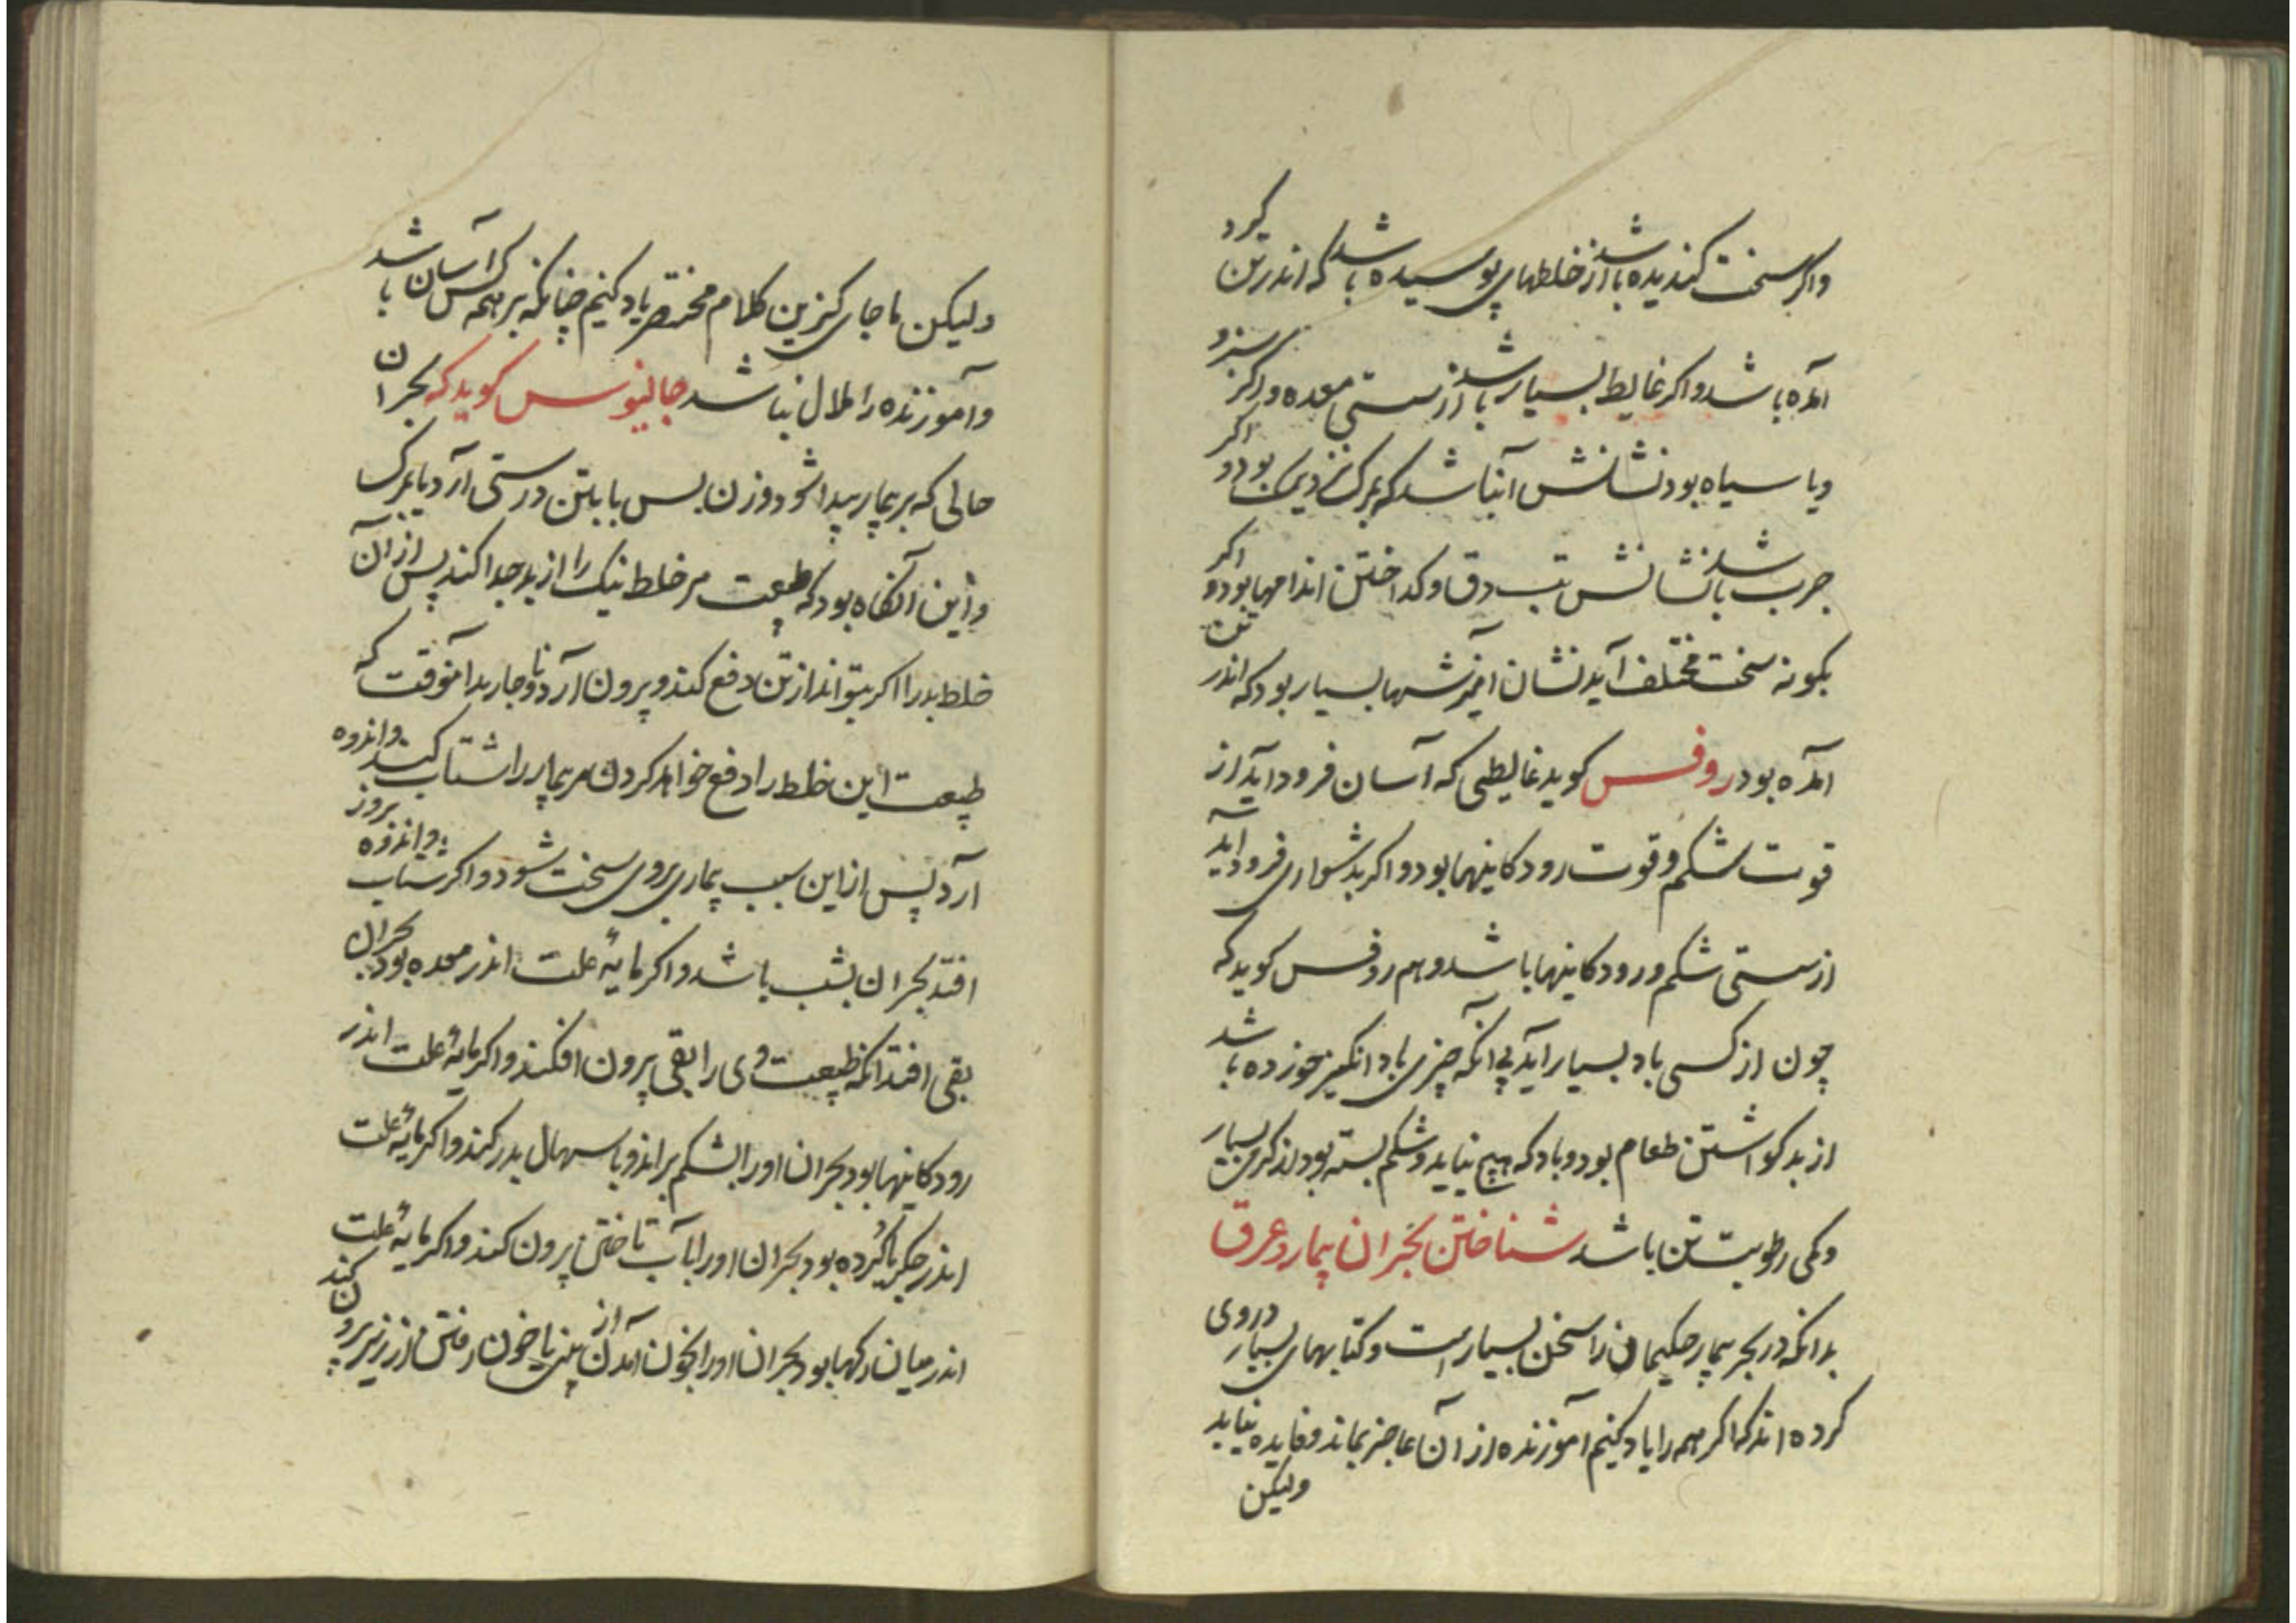 واکر سخت کندیده باشد از خلطهای پوسیده باشد که اندر تن کرد
آمده باشد واکر غایط بسیار باشد از سستی معده و اکر سبز و
ویا سیاه بود نشانش آنباشد که بمرک نزدیک بود و اکر
چرب باشد نشانش تب دق و کداختن اندامها بود و اکر
بکونه سخت مختلف آید نشان آمیزشها بسیار بود که اندر تن
آمده بود روفس کوید غایطی که آسان فرود آید از
قوت شکم و قوت رودکانیها بود و اکر بدشواری فرود آید
از سستی شکم و رودکانیها باشد و هم روفس کوید که
چون از کسی باد بسیار آید بی آنکه چیزی باد انکیز خورده باشد
از بد کواشتن طعام بود و باد که هیچ نیاید و شکم بسته بود از کرمی بسیار
و کمی رطوبت تن باشد شناختن بحران بیمار و عرق
بدانکه در بحر بیمار حکیمان را سخن بسیار است و کتابهای بسیار در وی
کرده اند که اکر همه را یاد کنیم آموزنده از آن عاجز بماند و فایده نیاید
ولیکن
ولیکن ما جای کزین کلام مختصر یاد کنیم چنانکه بر همه کس آسان باشد
و آموزنده را ملال نباشد جالینوس کوید که بحران
حالی که بر بیمار پیدا شود و زن بس یا بتن درستی آرد یا بمرک
و این آنکاه بود که طبیعت مر خلط نیک را از بد جدا کند پس از آن
خلط بد را اکر بتواند از تن دفع کند و بیرون آرد و ناچار بدآنوقت که
طبیعت این خلط را دفع خواهد کردن مر بیمار را شتاب کند و اندوه
آرد پس از این سبب بیماری بروی سخت شود و اکر شتاب و اندوه بروز
افتد بحران بشب باشد و اکر مایهٔ علت اندر معده بود بحران
بقی افتد آنکه طبیعت وی را بقی بیرون افکند و اکر مایهٔ علت اندر
رودکانیها بود بحران اورا شکم براند و باسهال بدر کند و اکر مایهٔ علت
اندر جکر یا کُرده بود بحران اورا بآب تاختن بیرون کند و اکر مایهٔ علت
اندر میان رکها بود بحران اورا بخون آمدن از بینی یا خون رفتن از زیر بیرون کند